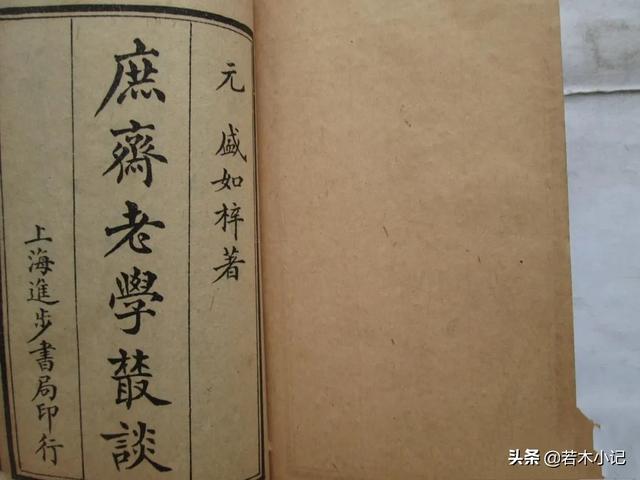 元 盛如梓著
庶齋老學叢談
上海進步書局印行
头条 @若木小记